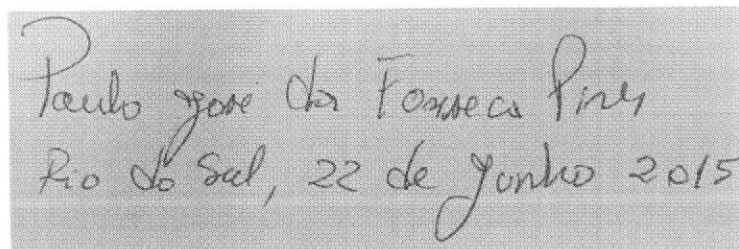 Paulo José da Fonseca Pires
Rio do Sul, 22 de Junho 2015